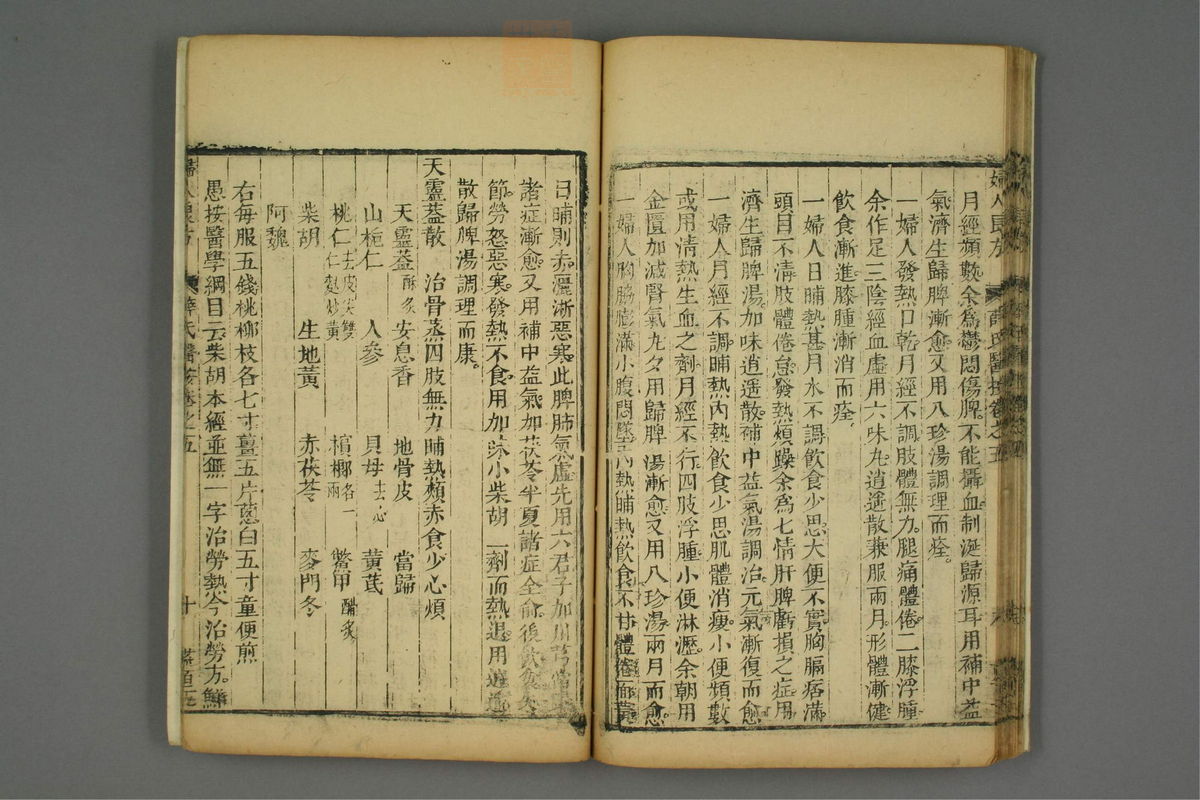 婦人良方 薛氏醫按卷之五
月經頻數余為鬱悶傷脾不能攝血制涎歸源耳用補中益
氣濟生歸脾漸愈又用八珍湯調理而痊
一婦人發熱口乾月經不調肢體無力腿痛體倦二膝浮腫
余作足三陰經血虛用六味丸逍遙散兼服兩月形體漸健
飲食漸進膝腫漸消而痊
一婦人日晡熱甚月水不調飲食少思大便不實胸膈痞滿
頭目不清肢體倦怠發熱煩躁余為七情肝脾虧損之症用
濟生歸脾湯加味逍遙散補中益氣湯調治元氣漸復而愈
一婦人月經不調晡熱內熱飲食少思肌體消瘦小便頻數
或用清熱生血之劑月經不行四肢浮腫小便淋瀝余朝用
金匱加減腎氣丸夕用歸脾湯漸愈又用八珍湯兩月而愈
一婦人胸脇膨滿小腹悶墜內熱晡熱飲食不甘體倦面黃
日晡則赤灑淅惡寒此脾肺氣虛先用六君子加川芎當歸
諸症漸愈又用補中益氣加茯苓半夏諸症全愈後飲食失
節勞怒惡寒發熱不食用加味小柴胡一劑而熱退用逍遙
散歸脾湯調理而康
天靈葢散 治骨蒸四肢無力晡熱頰赤食少心煩
天靈葢酥炙 安息香 地骨皮 當歸
山梔仁 人參 貝母去心 黃芪
桃仁去皮尖雙仁麩炒黃 檳榔各一兩 鱉甲醋炙
柴胡 生地黃 赤茯苓 麥門冬
阿魏
右每服五錢桃柳枝各七寸薑五片葱白五寸童便煎
愚按醫學綱目云柴胡本經並無一字治勞熱今治勞方鮮
婦人良方 薛氏醫按卷之五 十